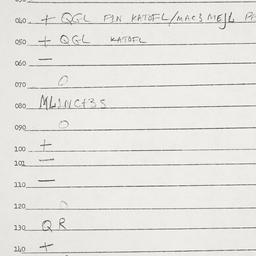 040 + QGL PIN KATOFL/MACS MEJL
050 + QGL KATOFL
060 —
070 O
080 MLINCT3S
090 O
100 +
101 —
110 —
120
130 Q R
140 +